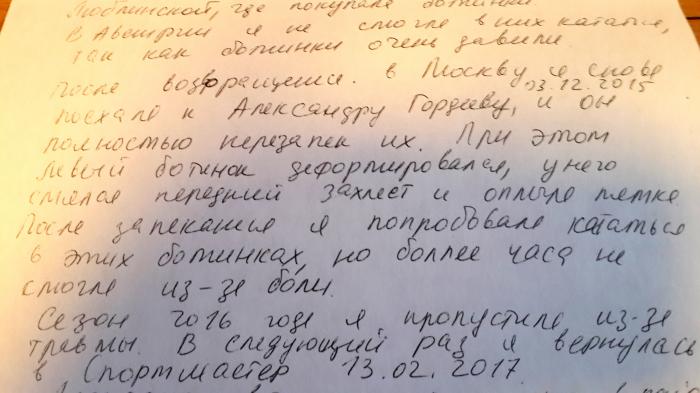 Люблинской, где покупала ботинки.
В Австрии я не смогла в них кататься,
так как ботинки очень давили.
После возвращения в Москву я снова
03.12.2015
поехала к Александру Гордиеву, и он
полностью перезапек их. При этом
левый ботинок деформировался, у него
смялся передний захлест и оплыла пятка
После запекания я попробовала кататься
в этих ботинках, но боллее часа не
смогла из-за боли.
Сезон 2016 года я пропустила из-за
травмы. В следующий раз я вернулась
в Спортмастер 13.02.2017